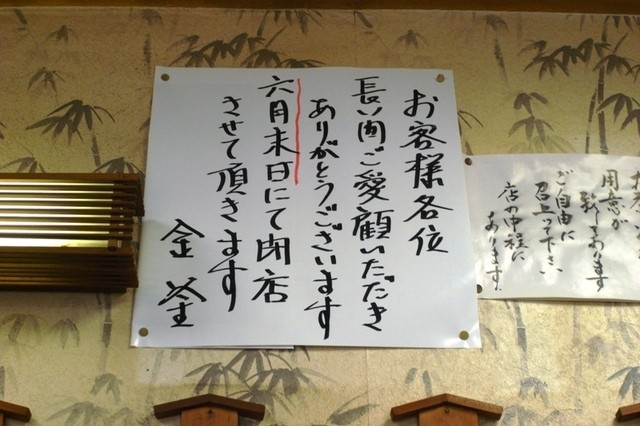 お客様各位
長い間ご愛顧いただき
ありがとうございます
六月末日にて閉店
させて頂きます
金釜
用意が
致してあります
ご自由に
召上って下さい
店の中程に
あります